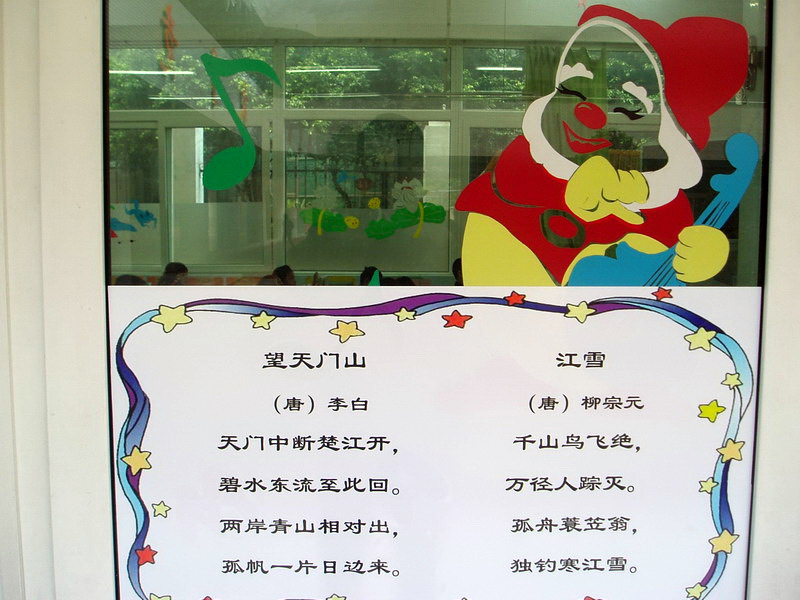 望天门山
（唐）李白
天门中断楚江开，
碧水东流至此回。
两岸青山相对出，
孤帆一片日边来。
江雪
（唐）柳宗元
千山鸟飞绝，
万径人踪灭。
孤舟蓑笠翁，
独钓寒江雪。